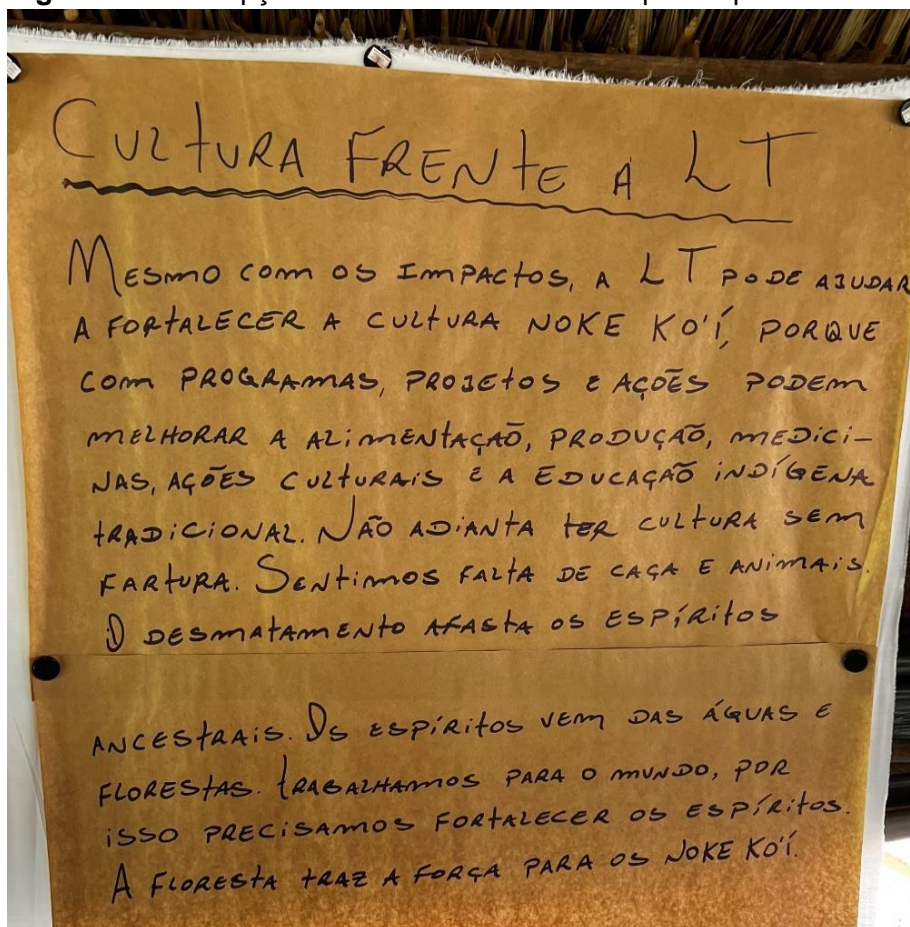 CULTURA FRENTE A LT
MESMO COM OS IMPACTOS, A LT PODE AJUDAR
A FORTALECER A CULTURA NOKE KO'Í, PORQUE
COM PROGRAMAS, PROJETOS E AÇÕES PODEM
MELHORAR A ALIMENTAÇAÕ, PRODUÇAÕ, MEDICI-
NAS, AÇÕES CULTURAIS E A EDUCAÇAÕ INDÍGENA
TRADICIONAL. NÃO ADIANTA TER CULTURA SEM
FARTURA. SENTIMOS FALTA DE CAÇA E ANIMAIS.
O DESMATAMENTO AFASTA OS ESPÍRITOS
ANCESTRAIS. OS ESPÍRITOS VEM DAS ÁGUAS E
FLORESTAS. TRABALHAMOS PARA O MUNDO, POR
ISSO PRECISAMOS FORTALECER OS ESPÍRITOS.
A FLORESTA TRAZ A FORÇA PARA OS NOKE KO'Í.